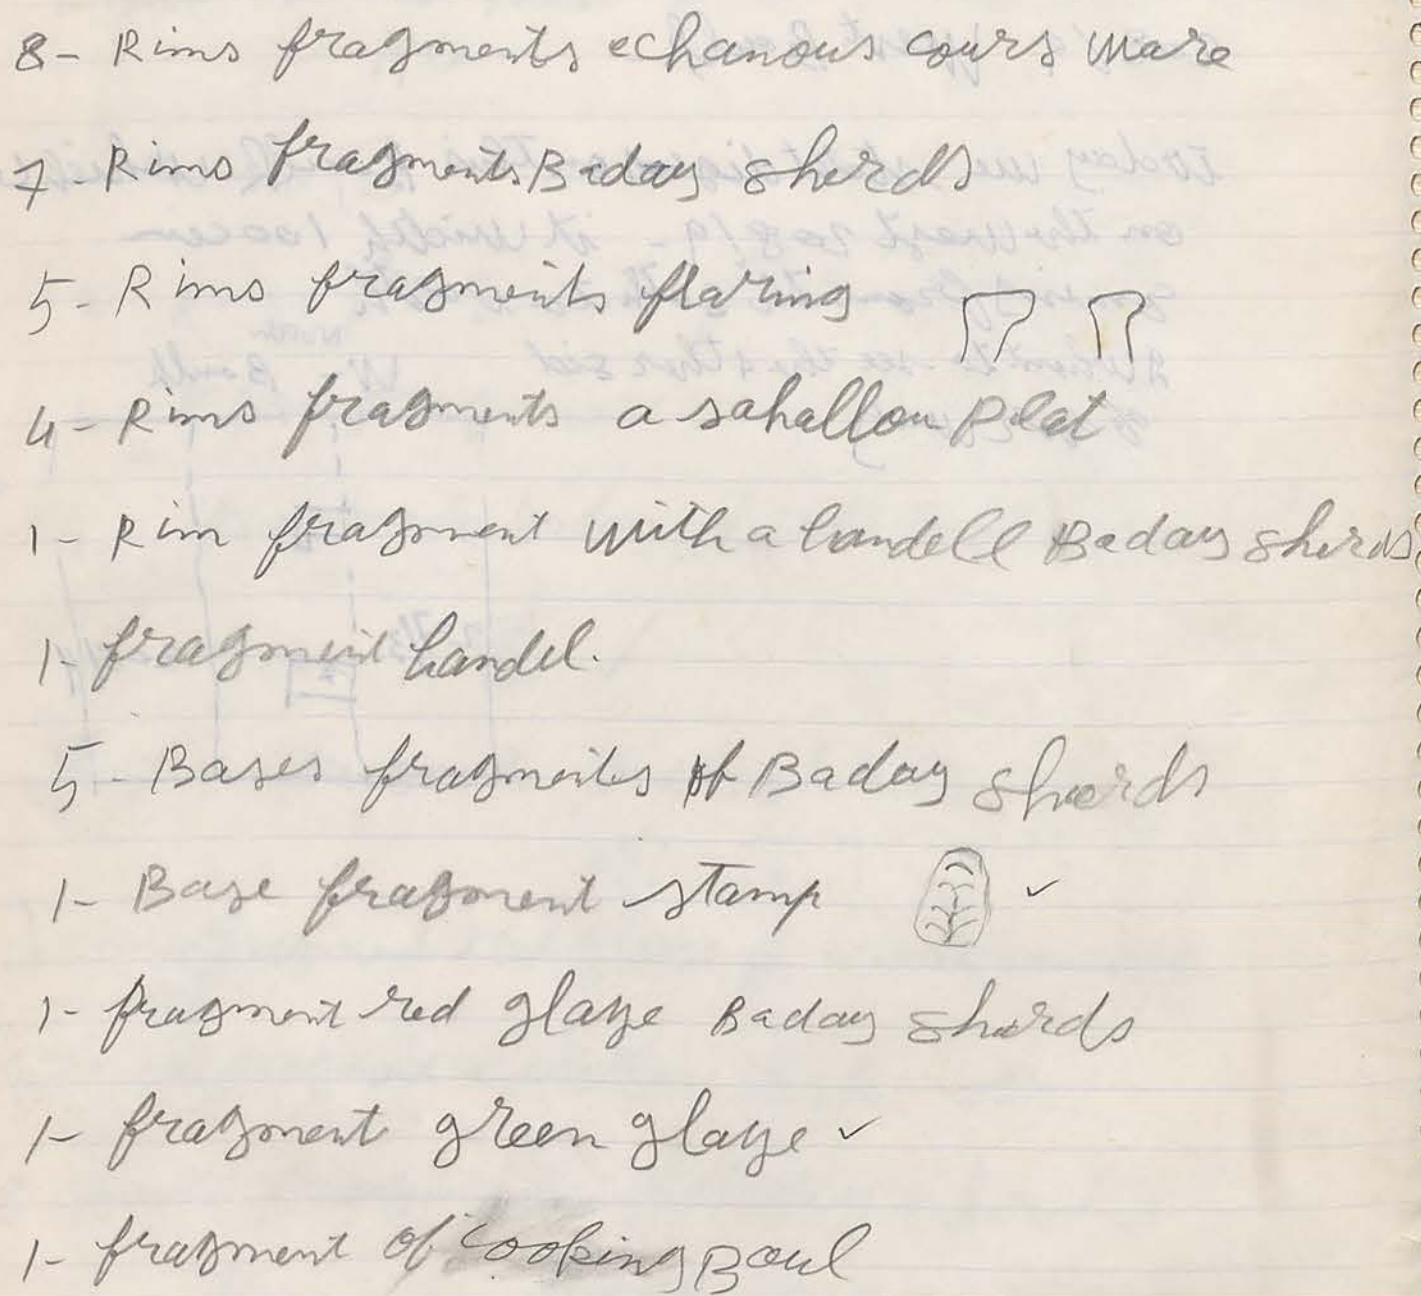 8- Rims fragments echanous cours ware
7- Rims fragments Baday sherds
5- Rims fragments flaring
4- Rims fragments a sahallou Plat
1- Rim fragment with a handell Baday sherds
1- fragment handel.
5- Bases fragments of Baday sherds
1- Base fragment stamp ✓
1- fragment red glaze Baday sherds
1- fragment green glaze ✓
1- fragment of cooking Boul